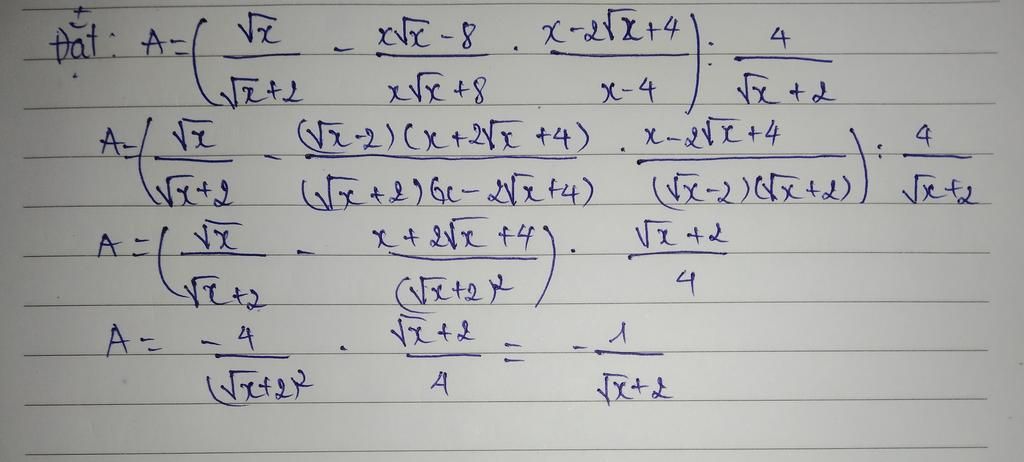 Đặt: A = ( √x / (√x + 2) - (x√x - 8) / (x√x + 8) . (x - 2√x + 4) / (x - 4) ) : 4 / (√x + 2)
A = ( √x / (√x + 2) - (√x - 2)(x + 2√x + 4) / (√x + 2)(x - 2√x + 4) . (x - 2√x + 4) / (√x - 2)(√x + 2) ) : 4 / (√x + 2)
A = ( √x / (√x + 2) - (x + 2√x + 4) / (√x + 2)² ) . (√x + 2) / 4
A = - 4 / (√x + 2)² . (√x + 2) / 4 = - 1 / (√x + 2)